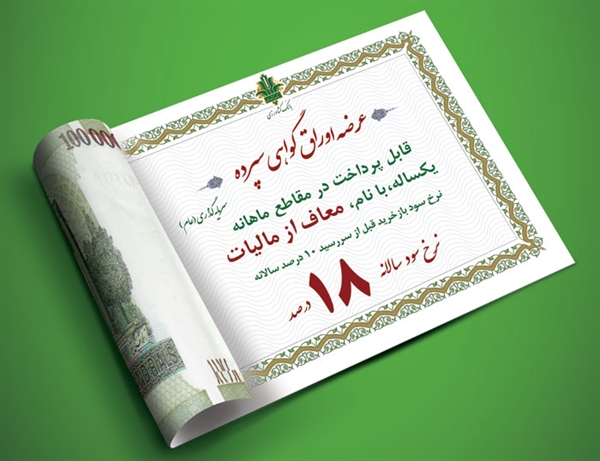 بانک کشاورزی
عرضه اوراق گواهی سپرده
سرمایه گذاری (عام)
قابل پرداخت در مقاطع ماهانه
یکساله، با نام، معاف از مالیات
نرخ سود بازخرید قبل از سررسید ۱۰ درصد سالانه
نرخ سود سالانه
۱۸ درصد
100000